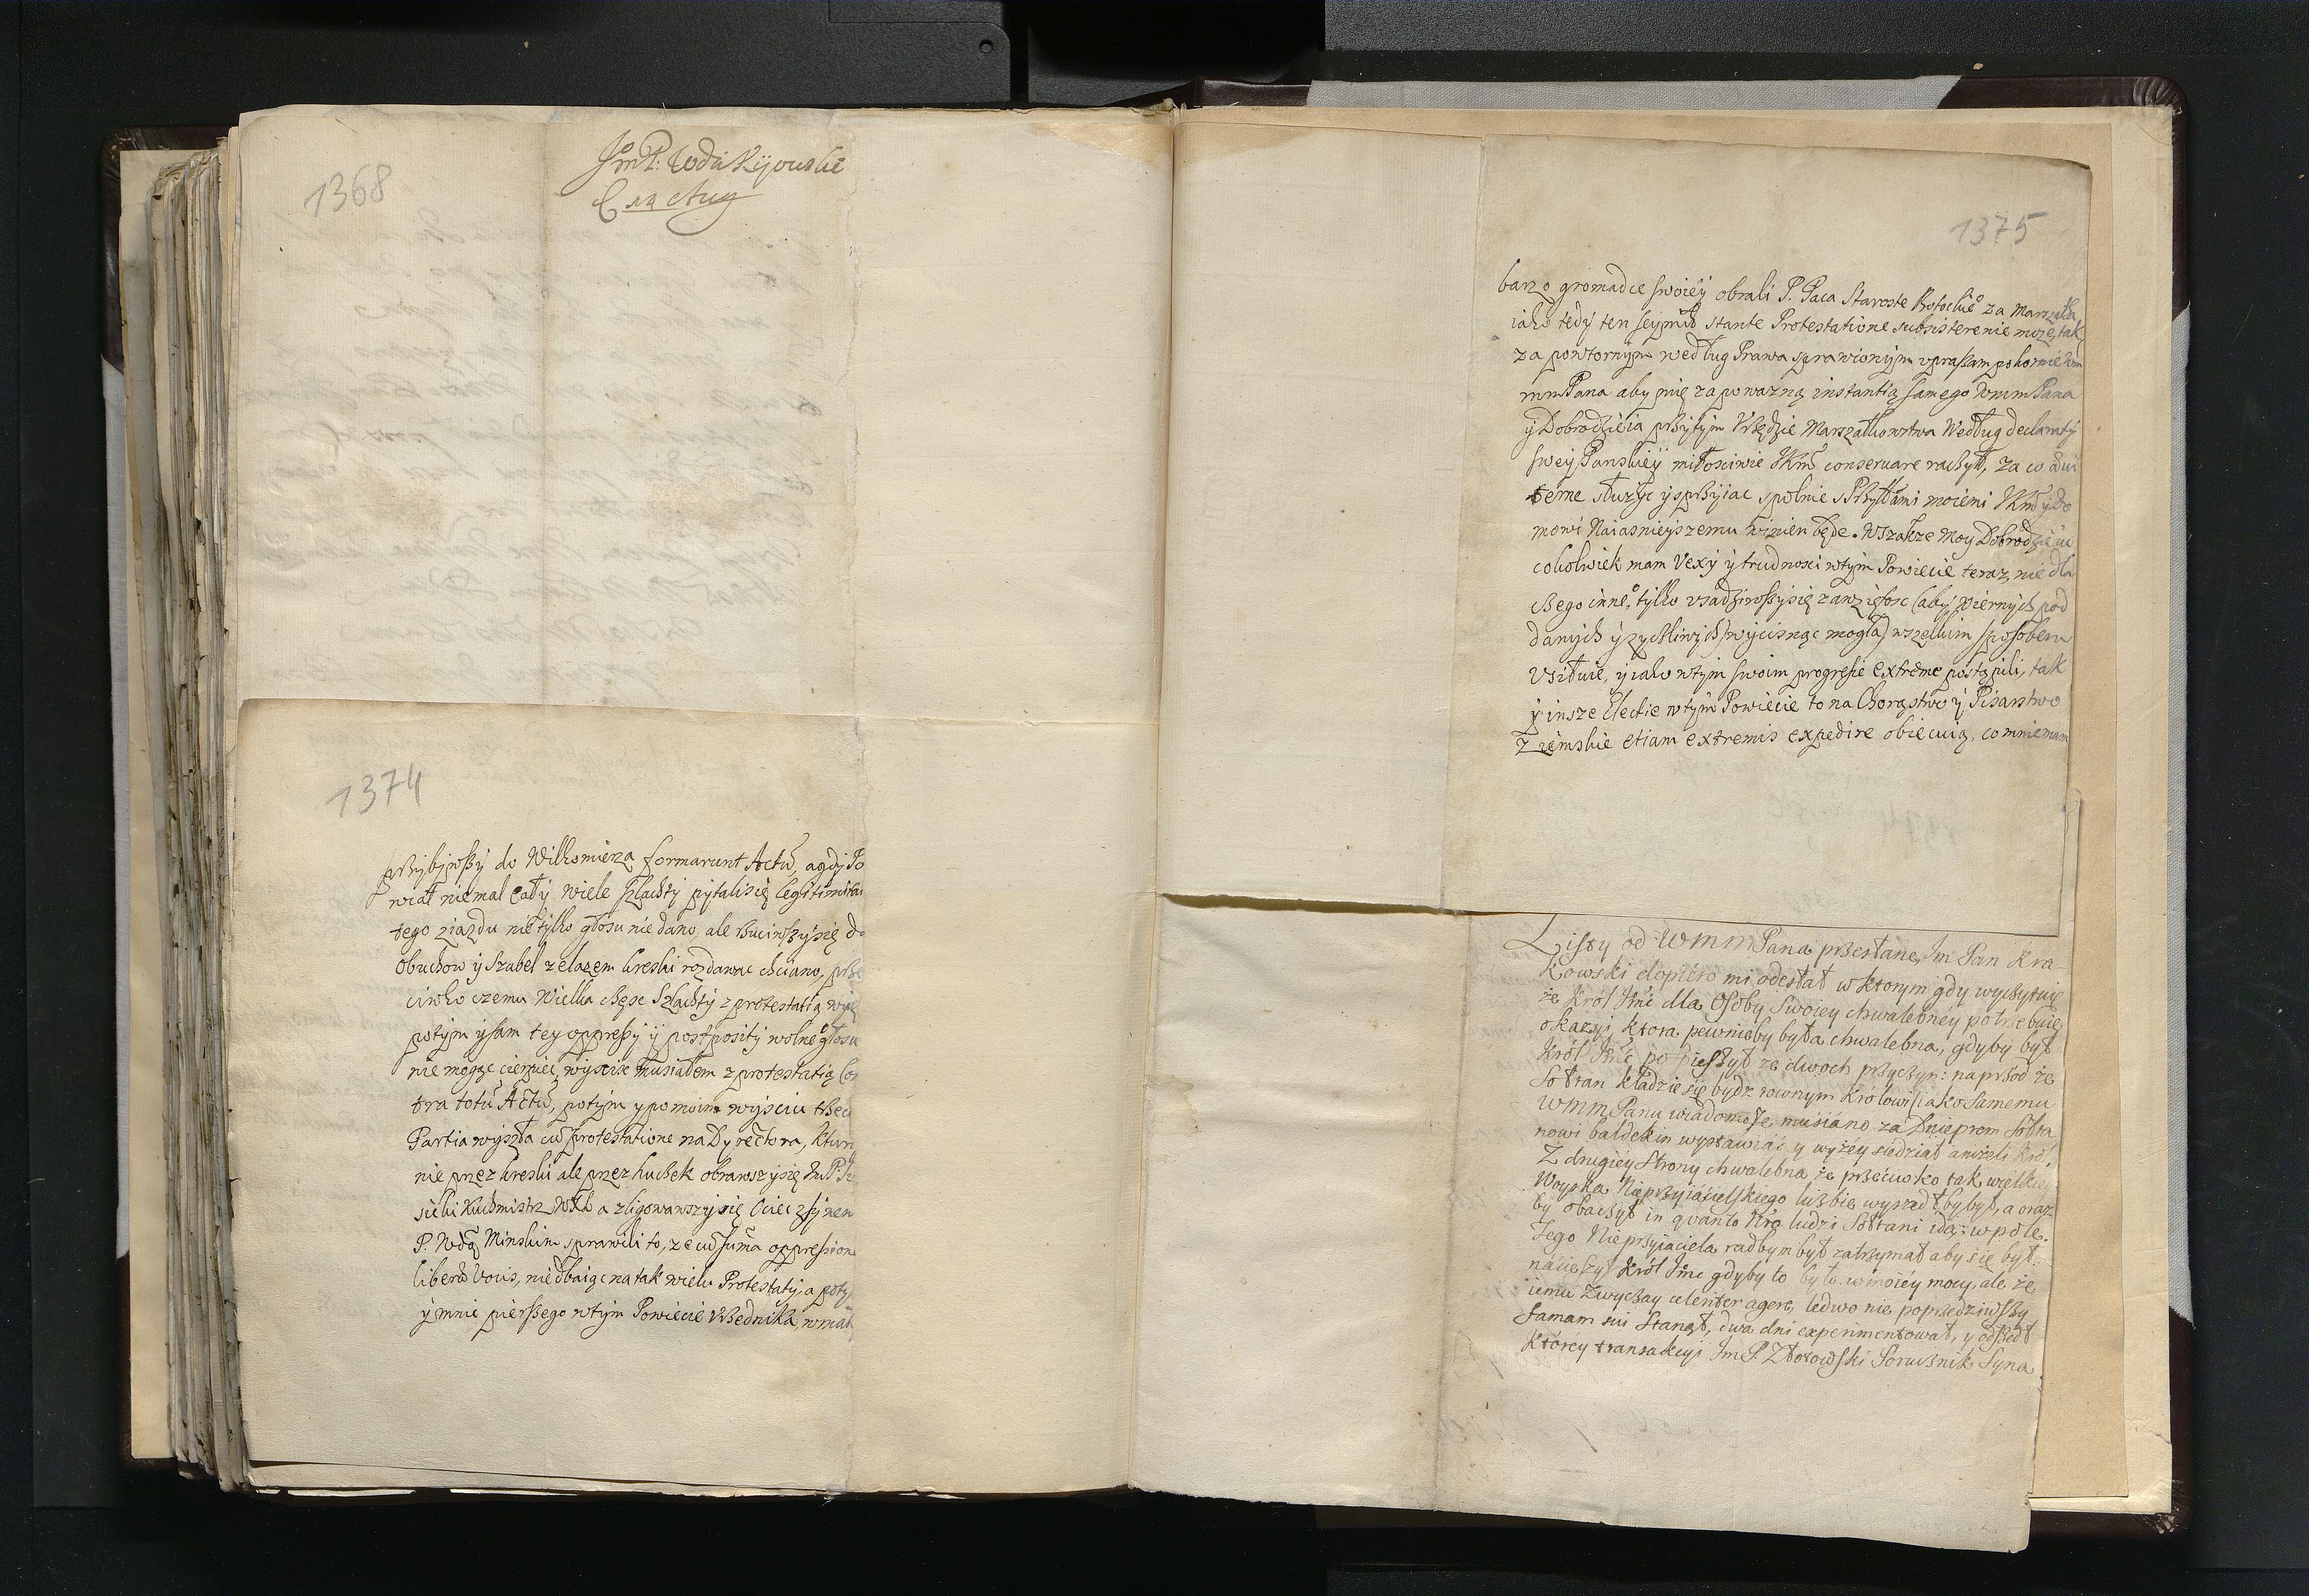 1368
JmP: Wdá Kijouski
C 12 Aug
1374
pßybywßy do Wilkomierza formarunt Actũ, agdy Po
wiat niemal cały wiele ßlachty pytali się legitimitat
tego ziazdu nietylko głosu nie dano, ale ßuciwßy się do
obuchow y szabel zelazem kreski rozdawac chciano, pße
ciwko czemu Wielka cßęsc Szlachty z protestatią wyß
potym y sam tey oppreßy y postposity wolne° głosu
nie mogąc cierpiec, wyscie musiałem z protestatią con
tra totũ Actũ, potym y pomoim wyjsciu trzecia
Partia wyszła cũ protestatione na Dyrectora, ktury
nie przez kreski ale przez kucßek obrawszy się
sicki Kuchmistrz WXL a zligowawszy się Ociec z synem
P. Wdą Minskim sprawili to, ze cũ sũma oppreßione
liberæ Vocis, nie dbaiąc na tak wielu Protestaty, a poty
y mnie pierßego wtym Powiecie Vßednika, wmał
1375
barzo gromadce swoiey obrali P. Paca Staroste za Marszałka,
iako tedy ten seymik stante Protestatione subsistere nie moze, tak
za powtornym według Prawa sprawionym vpraßam pokornie Wm
mm Pana aby mię za powazną instantią samego Wmm Pana
y Dobrodzieia pßytym Vßędzie Marszałkowstwa Według declaraty
swey Panskiey miłosciwie JKMč conseruare racßył, za co
terne słuzyc y spßyiac spolnie s Pßyłami moiemi JKMči y do
mowi Naiasnieyszemu winien będe. Wszakze Moy Dobrodzieiu
cokolwiek mam Vexy y trudnosci wtym Powiecie teraz, nie dla
cßego inne°, tylko vsadziwßy się zawzietosc (aby wiernych pod
danych y zycßliwych wycisnąc mogła) wszelkim sposobem
vsiłuie, y iako wtym swoim progresie extreme postąpili, tak
y insze Electie wtym Powiecie to na Chorąstwo y Pisarstwo
Ziemskie etiam extremis expedire obiecuią, co mniemam
Listy od Wmm Pana pßesłane, Jm Pan Kra-
kowski dopiero mi odesłał w ktorym gdy wycßytuię
że Król Jmć dla Osoby Swoiey chwalebnéy potrzebuię
okazyi, ktora pewnieby była chwalebna, gdyby był
Król Jmć pospießył ze dwoch pßycßyn: napßod że
Sołtan kładzie się bydz rownym Królowi (iako Samemu
Wmm Panu wiadomo) że musiano za Dnieprem Sołta
nowi baldekin wystawiáć y wyżéy siedział aniżeli Król,
Z drugiéy Strony chwalebna że pßeciwko tak wielkiey
Woyska Niepßyiacielskiego lic̈zbie wyszedł byłbył, a oraz
by obacßył in quanto Kro ludzi Sołtani idą: w pole.
Tego Niepßyiaciela radbym był zatrzymał aby się był
náciesßył Król Jmć gdyby to było w moiéy mocy, ale że
iemu Zwycßay celeriter agere, ledwo nie popßedziwßy
famam sui Stanął, dwa dni experimentował, y odßedł
Którey transakcyi Jm P. Złotowski Porucßnik Syna